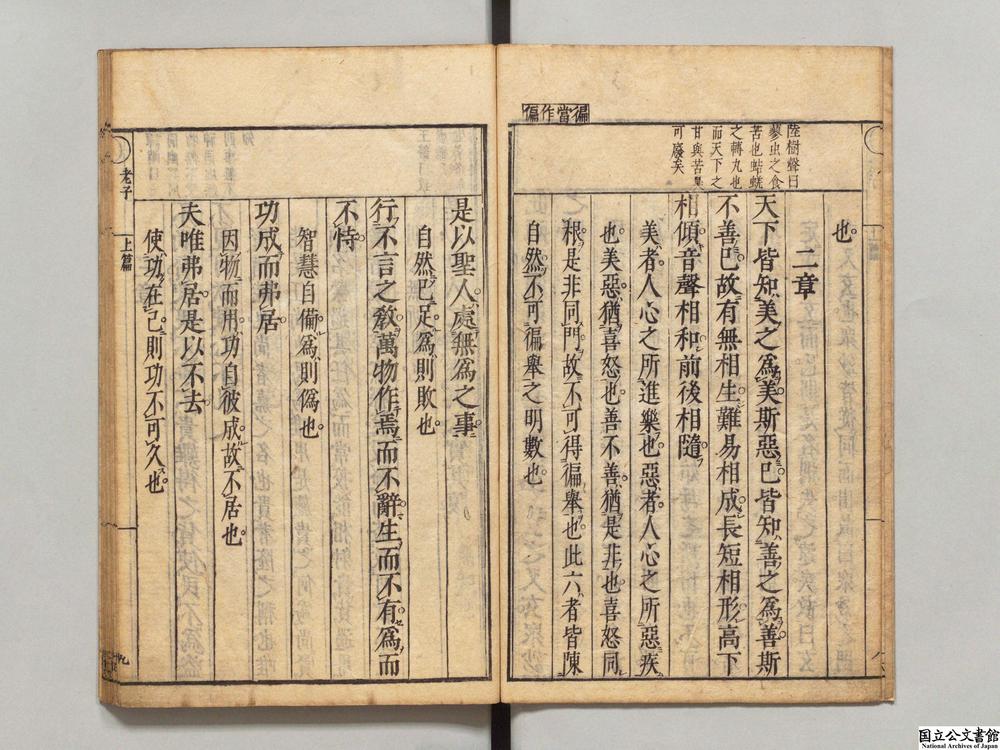 偏作當徧
陸樹聲曰
蓼虫之食
苦也蛣蜣
之轉丸也
而天下之
甘與苦具
可廢矣
也
二章
天下皆知美之爲美斯惡已皆知善之爲善斯
不善已故有無相生難易相成長短相形高下
相傾音聲相和前後相隨
美者人心之所進樂也惡者人心之所惡疾
也美惡猶喜怒也善不善猶是非也喜怒同
根是非同門故不可得徧舉也此六者皆陳
自然不可徧舉之明數也
是以聖人處無爲之事
自然已足爲則敗也
行不言之敎萬物作焉而不辭生而不有爲而
不恃
智慧自備爲則僞也
功成而弗居
因物而用功自彼成故不居也
夫唯弗居是以不去
使功在己則功不可久也
老子
上篇
九
国立公文書館
National Archives of Japan